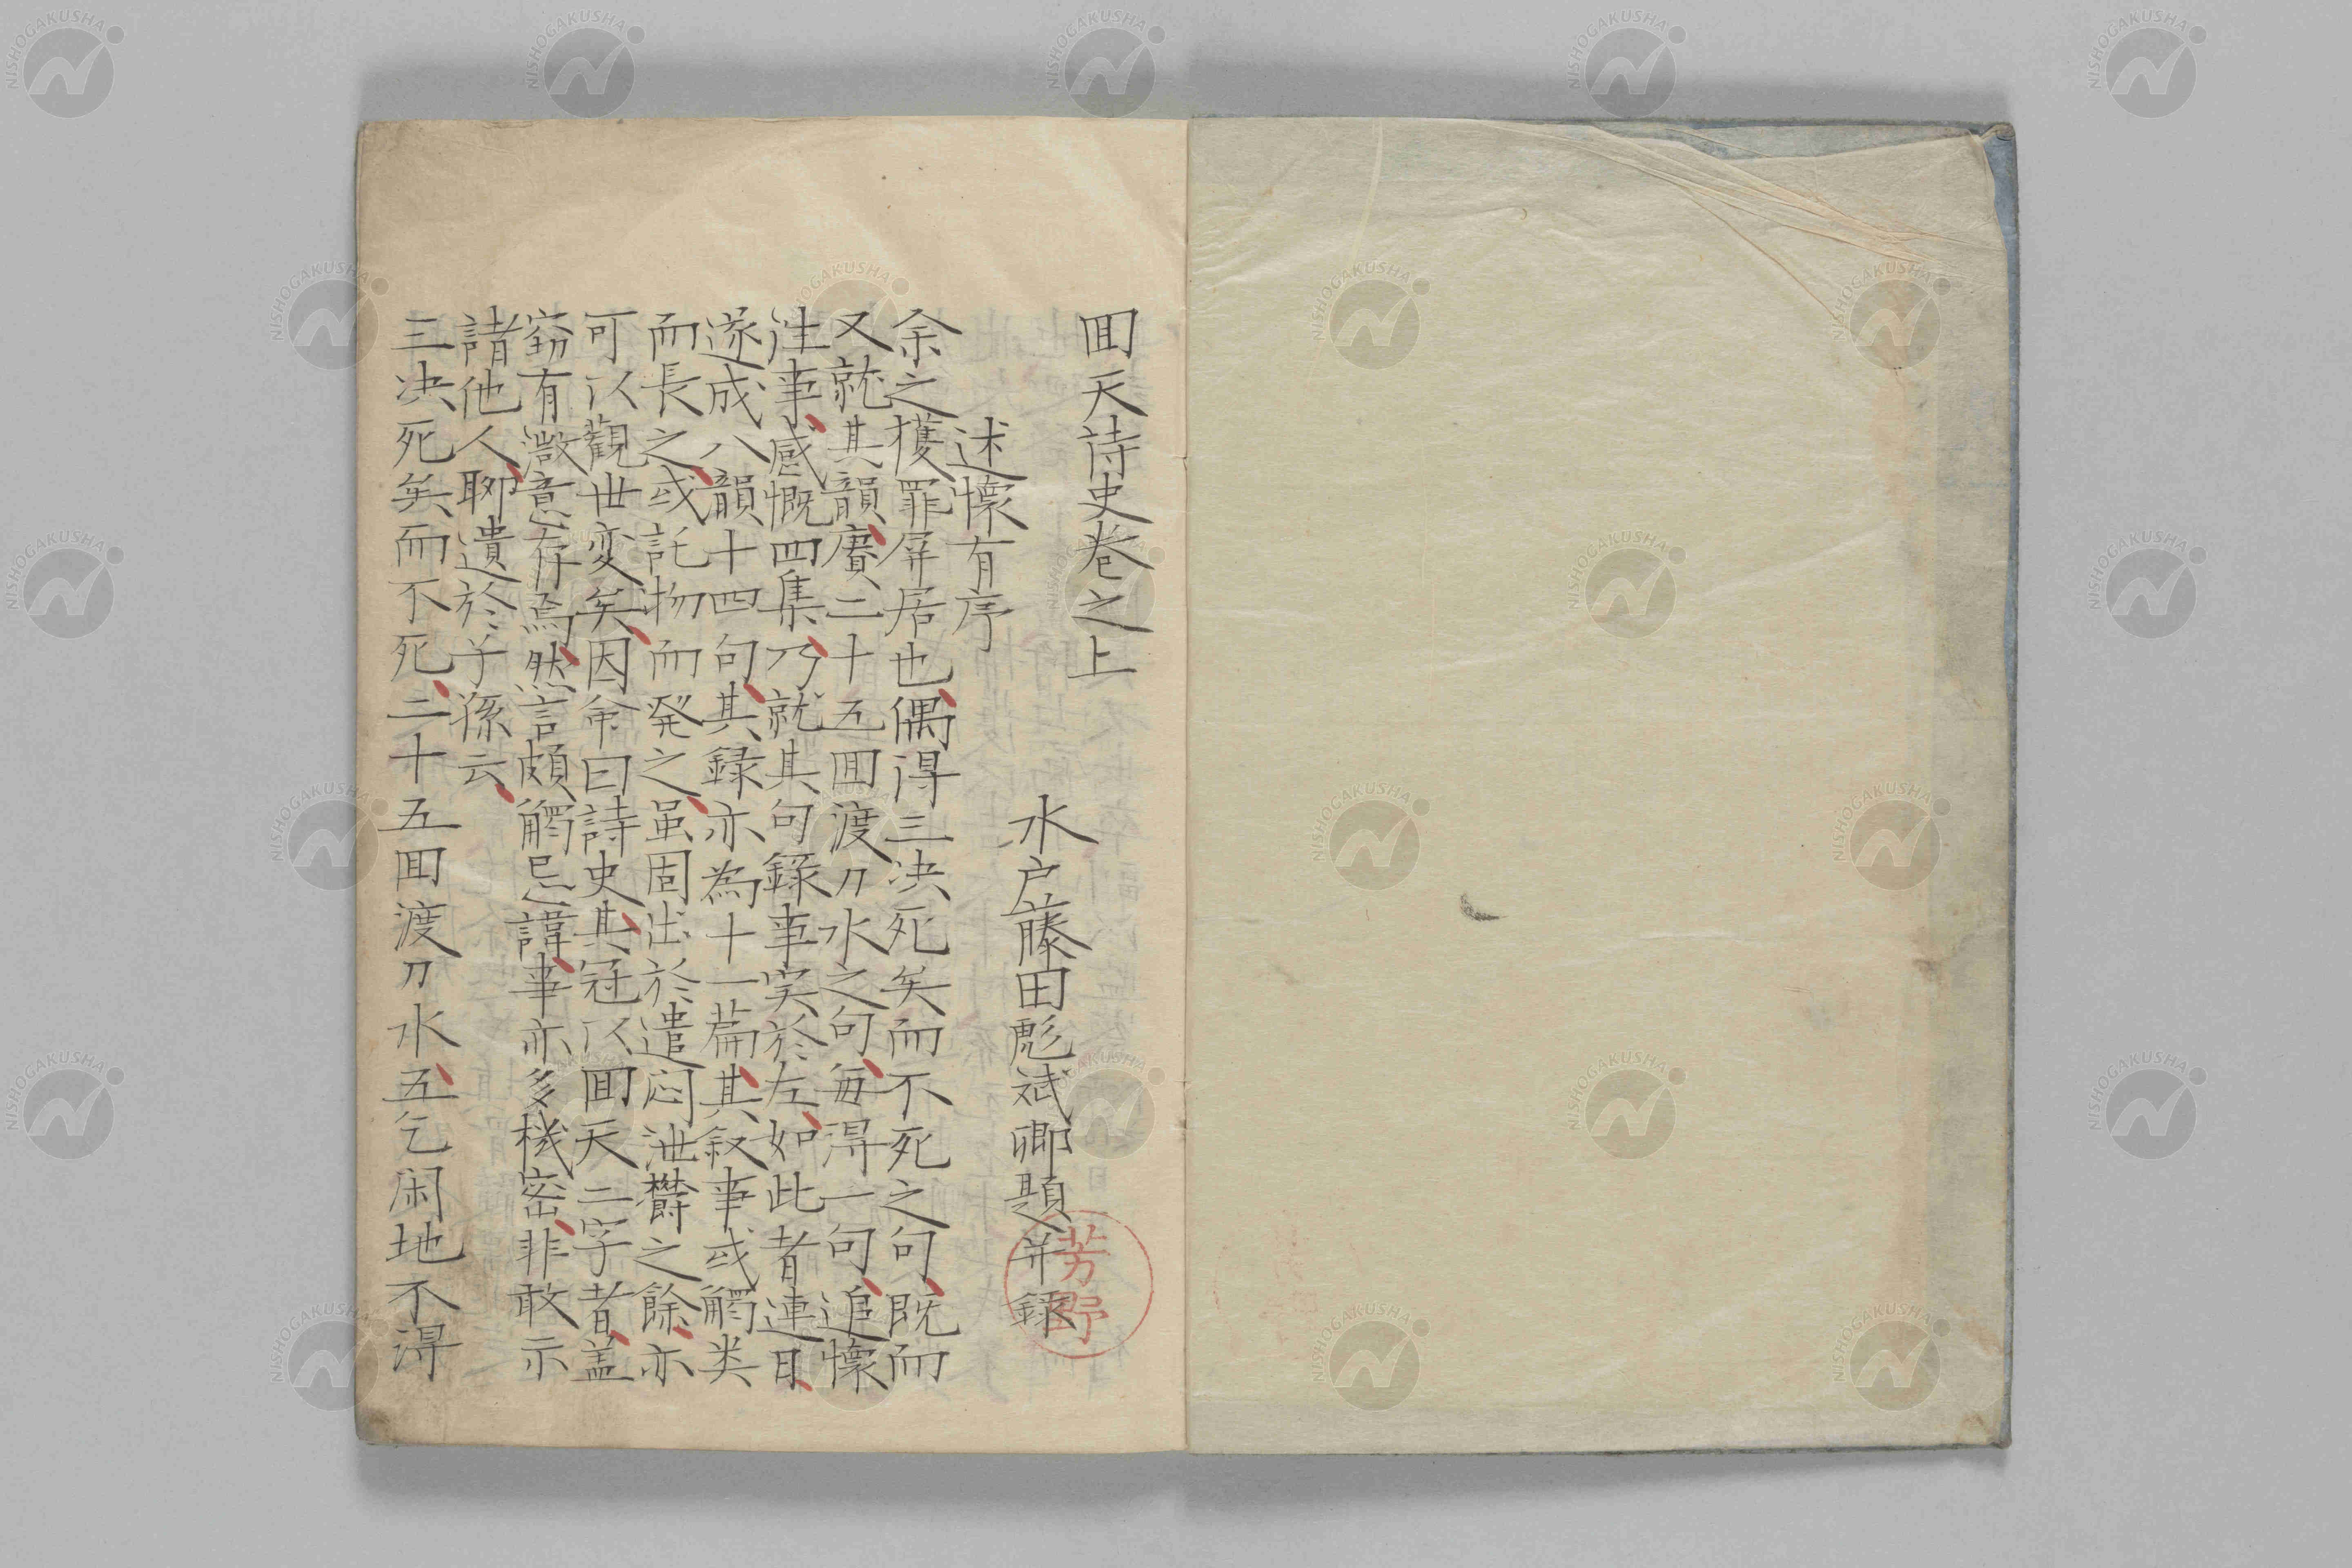 囬天詩史巻之上
水戸藤田彪斌卿題并録
芳野
述懷有序
余之獲罪屏居也偶得三决死矣而不死之句既而
又就其韻賡二十五囬渡刀水之句每得一句追懷
往事感慨四集乃就其句録事実於左如此者連日
遂成八韻十四句其録亦為十一篇其叙事或觸类
而長之或託物而発之虽固出於遣闷泄欝之餘亦
可以觀世変矣因命曰詩史其冠以囬天二字者盖
窃有微意存焉然言頗觸忌諱事亦多機密非敢示
諸他人聊遺於子孫云
三决死矣而不死二十五囬渡刀水五乞闲地不得
NISHOGAKUSHA